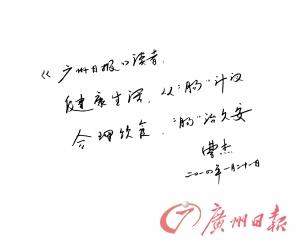 《广州日报》读者:
健康生活,从“肠”计议
合理饮食,“肠”治久安
曹杰
二〇一〇年一月二十一日
广州日报